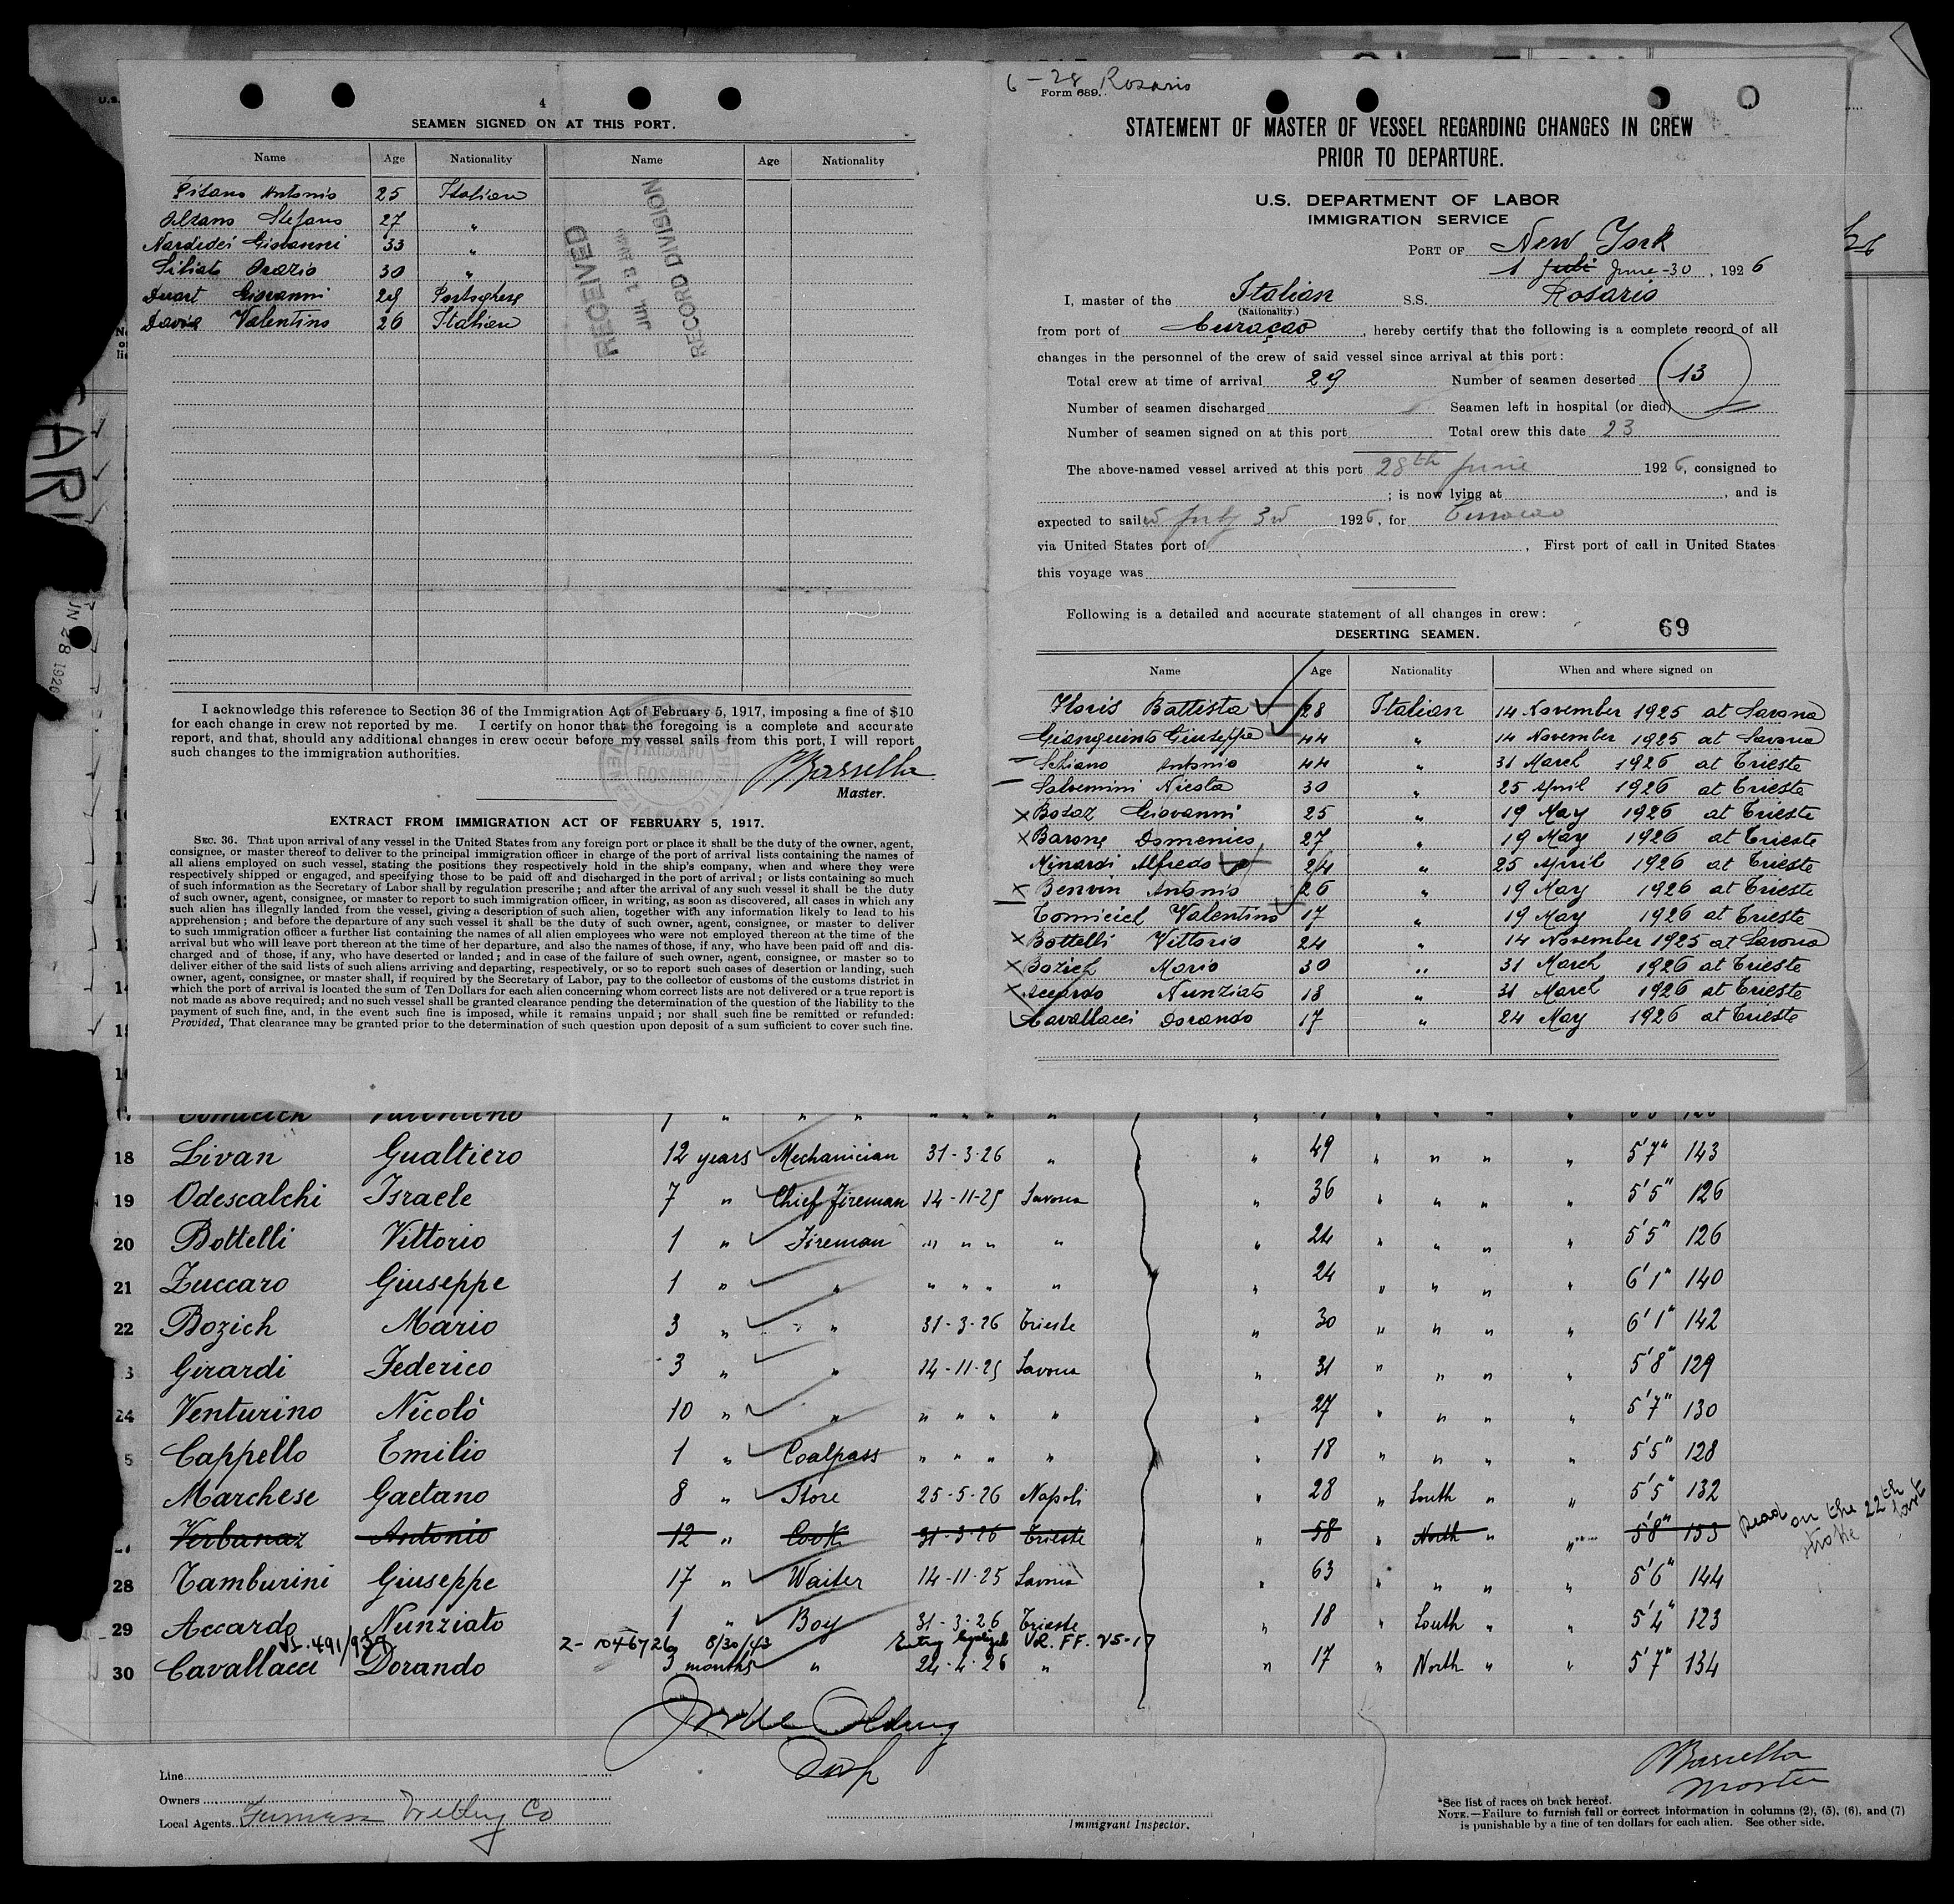 4
SEAMEN SIGNED ON AT THIS PORT.
Name Age Nationality Name Age Nationality
Pisano Antonio 25 Italian
Stefano 27 "
Giovanni 33 "
30 "
Duart Giovanni 29
Valentino 26 Italian
RECEIVED
JUL
RECORD DIVISION
I acknowledge this reference to Section 36 of the Immigration Act of February 5, 1917, imposing a fine of $10
for each change in crew not reported by me. I certify on honor that the foregoing is a complete and accurate
report, and that, should any additional changes in crew occur before my vessel sails from this port, I will report
such changes to the immigration authorities.
PIROSCAFO
ROSARIO
Master.
EXTRACT FROM IMMIGRATION ACT OF FEBRUARY 5, 1917.
SEC. 36. That upon arrival of any vessel in the United States from any foreign port or place it shall be the duty of the owner, agent,
consignee, or master thereof to deliver to the principal immigration officer in charge of the port of arrival lists containing the names of
all aliens employed on such vessel, stating the positions they respectively hold in the ship's company, when and where they were
respectively shipped or engaged, and specifying those to be paid off and discharged in the port of arrival; or lists containing so much
of such information as the Secretary of Labor shall by regulation prescribe; and after the arrival of any such vessel it shall be the duty
of such owner, agent, consignee, or master to report to such immigration officer, in writing, as soon as discovered, all cases in which any
such alien has illegally landed from the vessel, giving a description of such alien, together with any information likely to lead to his
apprehension; and before the departure of any such vessel it shall be the duty of such owner, agent, consignee, or master to deliver
to such immigration officer a further list containing the names of all alien employees who were not employed thereon at the time of the
arrival but who will leave port thereon at the time of her departure, and also the names of those, if any, who have been paid off and dis-
charged and of those, if any, who have deserted or landed; and in case of the failure of such owner, agent, consignee, or master so to
deliver either of the said lists of such aliens arriving and departing, respectively, or so to report such cases of desertion or landing, such
owner, agent, consignee, or master shall, if required by the Secretary of Labor, pay to the collector of customs of the customs district in
which the port of arrival is located the sum of Ten Dollars for each alien concerning whom correct lists are not delivered or a true report is
not made as above required; and no such vessel shall be granted clearance pending the determination of the question of the liability to the
payment of such fine, and, in the event such fine is imposed, while it remains unpaid; nor shall such fine be remitted or refunded:
Provided, That clearance may be granted prior to the determination of such question upon deposit of a sum sufficient to cover such fine.
6-28 Rosario
Form 689.
STATEMENT OF MASTER OF VESSEL REGARDING CHANGES IN CREW
PRIOR TO DEPARTURE.
U.S. DEPARTMENT OF LABOR
IMMIGRATION SERVICE
PORT OF New York
1 Juli June-30, 1926
I, master of the Italian S.S. Rosario
(Nationality.)
from port of Curaçao, hereby certify that the following is a complete record of all
changes in the personnel of the crew of said vessel since arrival at this port:
Total crew at time of arrival 29 Number of seamen deserted 13
Number of seamen discharged Seamen left in hospital (or died)
Number of seamen signed on at this port Total crew this date 23
The above-named vessel arrived at this port 28th June 1926, consigned to
; is now lying at , and is
expected to sail July 3rd 1926, for Curacao
via United States port of , First port of call in United States
this voyage was
Following is a detailed and accurate statement of all changes in crew:
DESERTING SEAMEN. 69
Name Age Nationality When and where signed on
Floris Battista 28 Italian 14 November 1925 at Savona
Gianquinto Giuseppe 44 " 14 November 1925 at Savona
Schiano Antonio 44 " 31 March 1926 at Trieste
Salvemini Nicola 30 " 25 April 1926 at Trieste
Giovanni 25 " 19 May 1926 at Trieste
Barone Domenico 27 " 19 May 1926 at Trieste
Minardi Alfredo 24 " 25 April 1926 at Trieste
Benvin Antonio 26 " 19 May 1926 at Trieste
Valentino 17 " 19 May 1926 at Trieste
Bottelli Vittorio 24 " 14 November 1925 at Savona
Bozich Mario 30 " 31 March 1926 at Trieste
Accardo Nunziato 18 " 31 March 1926 at Trieste
Cavallacci Dorando 17 " 24 May 1926 at Trieste
18 Livan Gualtiero 12 years Mechanician 31-3-26 " " 49 " " " " 5'7" 143
19 Odescalchi Israele 7 " Chief Fireman 14-11-25 Savona " 36 " " " " 5'5" 126
20 Bottelli Vittorio 1 " Fireman " " " " " 24 " " " " 5'5" 126
21 Zuccaro Giuseppe 1 " " " " " " " 24 " " " " 6'1" 140
22 Bozich Mario 3 " " 31-3-26 Trieste " 30 " " " " 6'1" 142
3 Girardi Federico 3 " " 14-11-25 Savona " 31 " " " " 5'8" 129
24 Venturino Nicolò 10 " " " " " " " 27 " " " " 5'7" 130
5 Cappello Emilio 1 " Coalpass " " " " " 18 " " " " 5'5" 128
Marchese Gaetano 8 " Store 25-5-26 Napoli " 28 " South " " 5'5" 132
Verbanaz Antonio 12 " Cook 31-3-26 Trieste " 58 " North " " 5'8" 153 Dead on the 22th
28 Tamburini Giuseppe 17 " Waiter 14-11-25 Savona " 63 " " " " 5'6" 144
29 Accardo Nunziato 1 " Boy 31-3-26 Trieste " 18 " South " " 5'4" 123
8/30/43
30 Cavallacci Dorando 3 months " 24-4-26 " " 17 " North " " 5'7" 134
Line
Owners
Local Agents Co
Immigrant Inspector.
*See list of races on back hereof.
NOTE.—Failure to furnish full or correct information in columns (2), (5), (6), and (7)
is punishable by a fine of ten dollars for each alien. See other side.